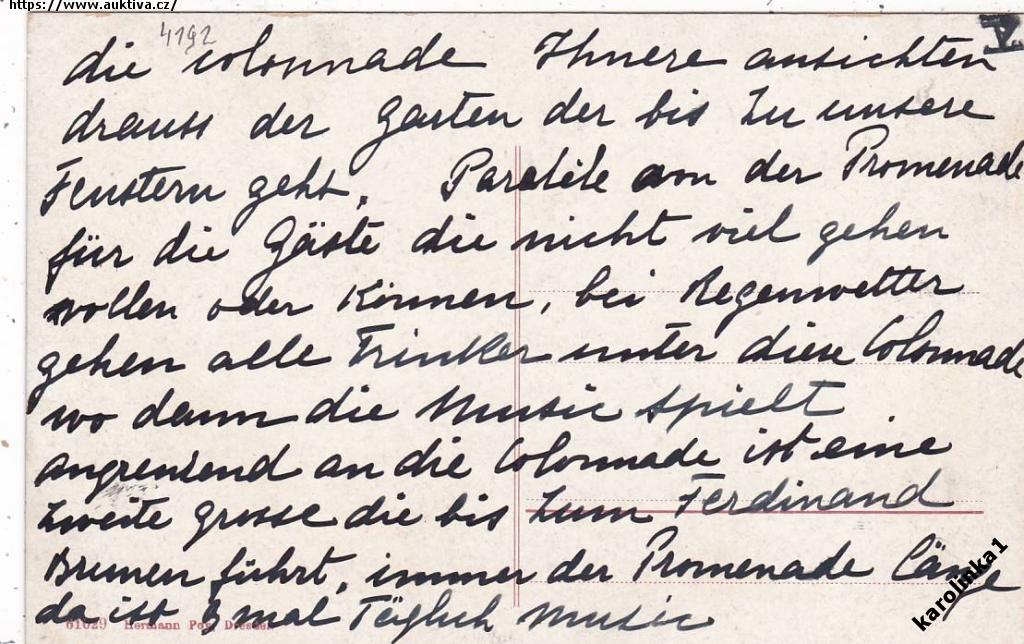 https://www.auktiva.cz/
4192
V
die colonnade Ihnere ansichten
drauss der Garten der bis zu unsere
Fenstern geht, Paralele von der Promenade
für die Gäste die nicht viel gehen
wollen oder können, bei Regenwetter
gehen alle Trinker unter diese Colonnade
wo dann die Music spielt
angrenzend an die Colonnade ist eine
zweite grosse die bis zum Ferdinand
Brunen führt, immer der Promenade Länge
da ist 3 mal Täglich Music
61029 Hermann Poy, Dresden
karolinka1